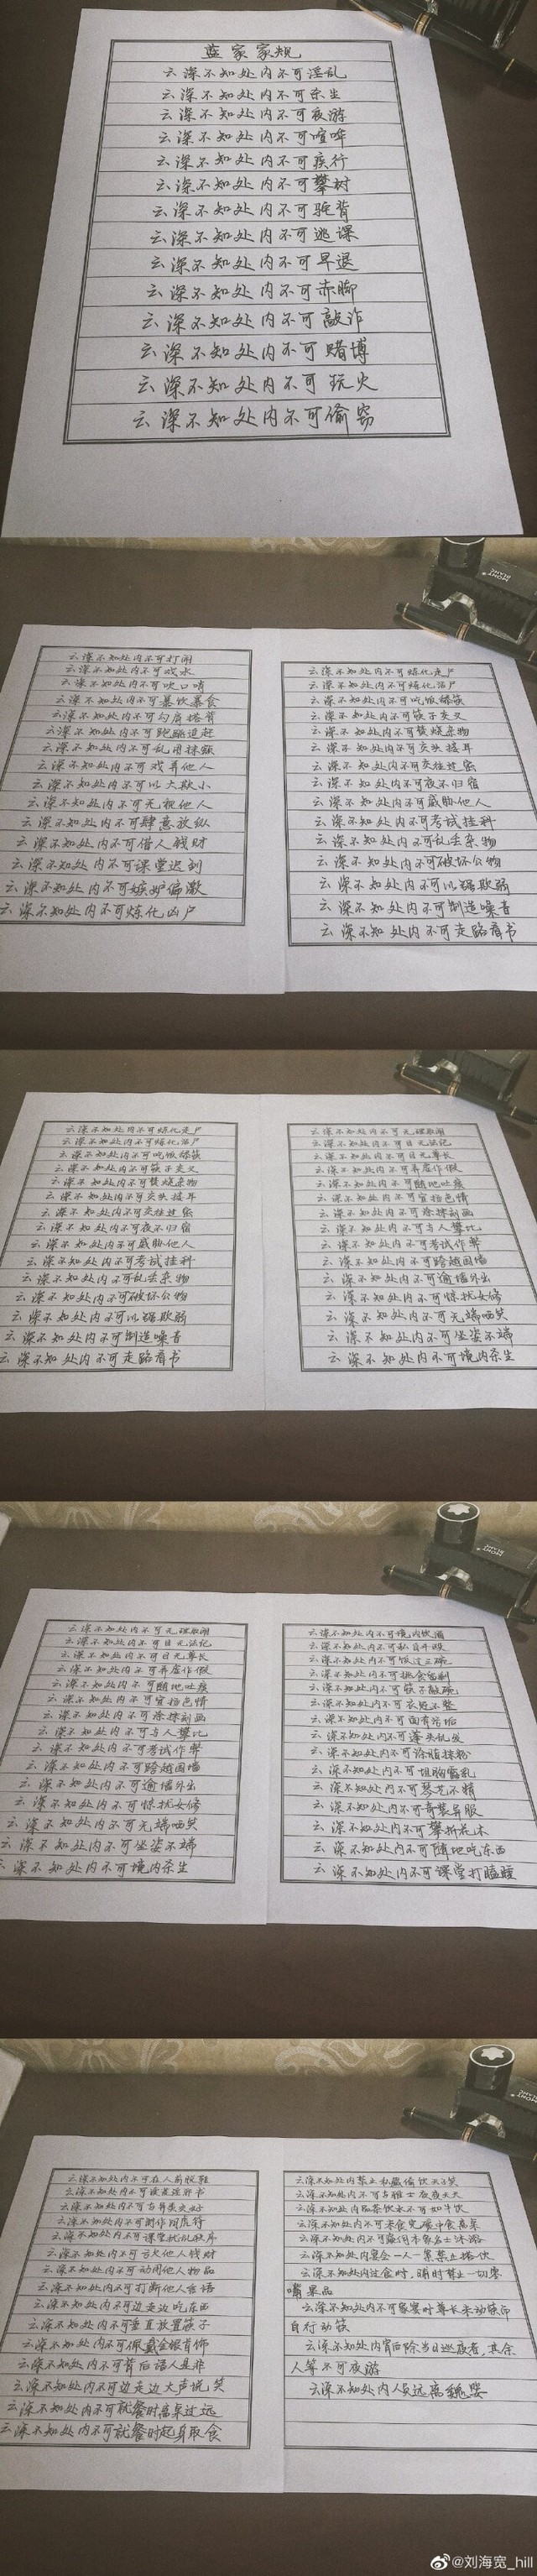 蓝家家规
云深不知处内不可淫乱
云深不知处内不可杀生
云深不知处内不可夜游
云深不知处内不可喧哗
云深不知处内不可疾行
云深不知处内不可攀树
云深不知处内不可驼背
云深不知处内不可逃课
云深不知处内不可早退
云深不知处内不可赤脚
云深不知处内不可敲诈
云深不知处内不可赌博
云深不知处内不可玩火
云深不知处内不可偷窃
MONT
BLANC
云深不知处内不可打闹
云深不知处内不可戏水
云深不知处内不可吹口哨
云深不知处内不可暴饮暴食
云深不知处内不可勾肩搭背
云深不知处内不可跑跳追赶
云深不知处内不可乱用抹额
云深不知处内不可戏弄他人
云深不知处内不可以大欺小
云深不知处内不可无视他人
云深不知处内不可肆意放纵
云深不知处内不可借人钱财
云深不知处内不可课堂迟到
云深不知处内不可嫉妒偏激
云深不知处内不可炼化凶尸
云深不知处内不可炼化走尸
云深不知处内不可炼化活尸
云深不知处内不可吃饭舔筷
云深不知处内不可筷子交叉
云深不知处内不可焚烧杂物
云深不知处内不可交头接耳
云深不知处内不可交往过密
云深不知处内不可夜不归宿
云深不知处内不可威胁他人
云深不知处内不可考试挂科
云深不知处内不可乱丢杂物
云深不知处内不可破坏公物
云深不知处内不可以强欺弱
云深不知处内不可制造噪音
云深不知处内不可走路看书
云深不知处内不可炼化走尸
云深不知处内不可炼化活尸
云深不知处内不可吃饭舔筷
云深不知处内不可筷子交叉
云深不知处内不可焚烧杂物
云深不知处内不可交头接耳
云深不知处内不可交往过密
云深不知处内不可夜不归宿
云深不知处内不可威胁他人
云深不知处内不可考试挂科
云深不知处内不可乱丢杂物
云深不知处内不可破坏公物
云深不知处内不可以强欺弱
云深不知处内不可制造噪音
云深不知处内不可走路看书
云深不知处内不可无理取闹
云深不知处内不可目无法纪
云深不知处内不可目无尊长
云深不知处内不可弄虚作假
云深不知处内不可随地吐痰
云深不知处内不可宣扬色情
云深不知处内不可涂抹刻画
云深不知处内不可与人攀比
云深不知处内不可考试作弊
云深不知处内不可跨越围墙
云深不知处内不可逾墙外出
云深不知处内不可惊扰女修
云深不知处内不可无端哂笑
云深不知处内不可坐姿不端
云深不知处内不可境内杀生
MONT
BLANC
云深不知处内不可无理取闹
云深不知处内不可目无法纪
云深不知处内不可目无尊长
云深不知处内不可弄虚作假
云深不知处内不可随地吐痰
云深不知处内不可宣扬色情
云深不知处内不可涂抹刻画
云深不知处内不可与人攀比
云深不知处内不可考试作弊
云深不知处内不可跨越围墙
云深不知处内不可逾墙外出
云深不知处内不可惊扰女修
云深不知处内不可无端哂笑
云深不知处内不可坐姿不端
云深不知处内不可境内杀生
云深不知处内不可境内饮酒
云深不知处内不可私自斗殴
云深不知处内不可饭过三碗
云深不知处内不可挑食留剩
云深不知处内不可筷子敲碗
云深不知处内不可衣冠不整
云深不知处内不可面有污垢
云深不知处内不可蓬头乱发
云深不知处内不可涂脂抹粉
云深不知处内不可袒胸露乳
云深不知处内不可琴艺不精
云深不知处内不可奇装异服
云深不知处内不可攀折花木
云深不知处内不可随地吃东西
云深不知处内不可课堂打瞌睡
MONT
BLANC
云深不知处内不可在人前脱鞋
云深不知处内不可读荒淫邪书
云深不知处内不可与异类交好
云深不知处内不可制作阴虎符
云深不知处内不可课堂扰乱秩序
云深不知处内不可亏欠他人钱财
云深不知处内不可动用他人物品
云深不知处内不可打断他人言语
云深不知处内不可边走边吃东西
云深不知处内不可垂直放置筷子
云深不知处内不可佩戴金银首饰
云深不知处内不可背后语人是非
云深不知处内不可边走边大声说笑
云深不知处内不可就餐时离桌过远
云深不知处内不可就餐时起身取食
云深不知处内禁止私藏偷饮天子笑
云深不知处内宴会一人一案禁止搭伙
云深不知处内过食时，朝时禁止一切零
嘴果品
云深不知处内不可家宴时尊长未动筷而
自行动筷
云深不知处内宵后除当日巡夜者，其余
人等不可夜游
云深不知处内人员远离魏婴
@刘海宽_hill